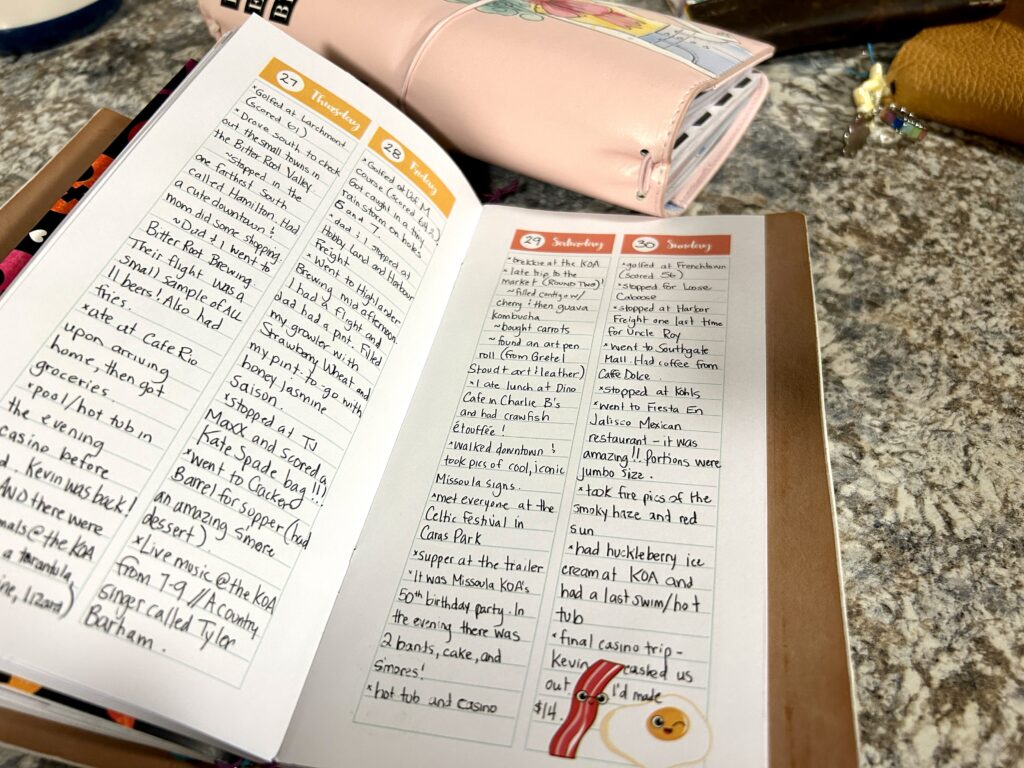 27 Thursday
*Golfed at Larchmont
(scored 61)
*Drove South to check
out the small towns in
the Bitter Root Valley
~stopped in the
one farthest South
called Hamilton. Had
a cute downtown &
mom did some shopping.
~Dad & I went to
Bitter Root Brewing.
Their flight was a
small sample of ALL
11 beers! Also had
fries.
*ate at Cafe Rio
upon arriving
home, then got
groceries.
*pool/hot tub in
the evening
casino before
Kevin was back!
AND there were
@ the KOA
a tarantula,
lizard)
28 Friday
*Golfed at U of M
course (scored
Got caught in a tiny
rain storm on holes
6 and 7.
*dad & I stopped at
Hobby Land and Harbour
Freight
*Went to Highlander
Brewing mid afternoon.
I had a flight and
dad had a pint. Filled
my growler with
Strawberry Wheat and
my pint to go with
honey Jasmine
Saison.
*stopped at TJ
Maxx and scored a
Kate Spade bag!!)
*Went to Cracker
Barrel for supper (had
an amazing s'more
dessert).
*Live music @ the KOA
from 7-9 // A country
singer called Tyler
Barham.
29 Saturday
*brekkie at the KOA
*late trip to the
market (ROUND TWO)!
~filled w/
cherry & then guava
kombucha
~bought carrots
~found an art pen
roll (from Gretel
Stoudt art & leather)
*late lunch at Dino
Cafe in Charlie B's
and had crawfish
étouffée!
*walked downtown &
took pics of cool, iconic
Missoula signs.
*met everyone at the
Celtic Festival in
Caras Park
*supper at the trailer
*It was Missoula KOA's
50th birthday party. In
the evening there was
2 bands, cake, and
S'mores!
*hot tub and casino
30 Sunday
*golfed at Frenchtown
(Scored 56)
*stopped for Loose
Caboose
*stopped at Harbor
Freight one last time
for Uncle Roy
*went to Southgate
Mall. Had coffee from
Caffé Dolce.
*stopped at Kohls
*went to Fiesta En
Jalisco Mexican
restaurant - it was
amazing!! Portions were
jumbo size.
*took fire pics of the
smoky haze and red
sun
*had huckleberry ice
cream at KOA and
had a last swim/hot
tub
*final casino trip -
Kevin cashed us
out I'd made
$14.